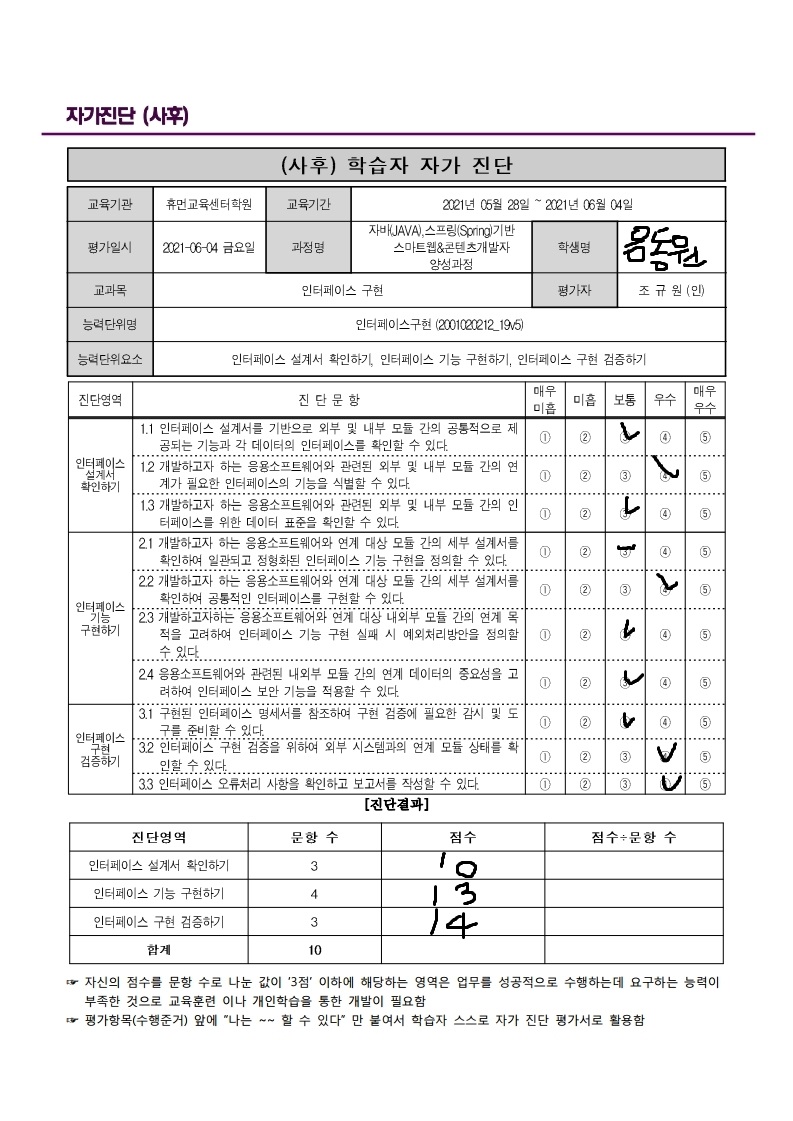 자가진단 (사후)
(사후) 학습자 자가 진단
교육기관 휴먼교육센터학원 교육기간 2021년 05월 28일 ~ 2021년 06월 04일
평가일시 2021-06-04 금요일 과정명 자바(JAVA),스프링(Spring)기반
스마트웹&콘텐츠개발자
양성과정 학생명 음동원
교과목 인터페이스 구현 평가자 조 규 원 (인)
능력단위명 인터페이스구현 (2001020212_19v5)
능력단위요소 인터페이스 설계서 확인하기, 인터페이스 기능 구현하기, 인터페이스 구현 검증하기
진단영역 진 단 문 항 매우 미흡 미흡 보통 우수 매우 우수
인터페이스
설계서
확인하기
1.1 인터페이스 설계서를 기반으로 외부 및 내부 모듈 간의 공통적으로 제
공되는 기능과 각 데이터의 인터페이스를 확인할 수 있다. ① ② ④ ⑤
1.2 개발하고자 하는 응용소프트웨어와 관련된 외부 및 내부 모듈 간의 연
계가 필요한 인터페이스의 기능을 식별할 수 있다. ① ② ③ ④ ⑤
1.3 개발하고자 하는 응용소프트웨어와 관련된 외부 및 내부 모듈 간의 인
터페이스를 위한 데이터 표준을 확인할 수 있다. ① ② ③ ④ ⑤
인터페이스
기능
구현하기
2.1 개발하고자 하는 응용소프트웨어와 연계 대상 모듈 간의 세부 설계서를
확인하여 일관되고 정형화된 인터페이스 기능 구현을 정의할 수 있다. ① ② ③ ④ ⑤
2.2 개발하고자 하는 응용소프트웨어와 연계 대상 모듈 간의 세부 설계서를
확인하여 공통적인 인터페이스를 구현할 수 있다. ① ② ③ ④ ⑤
2.3 개발하고자하는 응용소프트웨어와 연계 대상 내외부 모듈 간의 연계 목
적을 고려하여 인터페이스 기능 구현 실패 시 예외처리방안을 정의할
수 있다. ① ② ③ ④ ⑤
2.4 응용소프트웨어와 관련된 내외부 모듈 간의 연계 데이터의 중요성을 고
려하여 인터페이스 보안 기능을 적용할 수 있다. ① ② ③ ④ ⑤
인터페이스
구현
검증하기
3.1 구현된 인터페이스 명세서를 참조하여 구현 검증에 필요한 감시 및 도
구를 준비할 수 있다. ① ② ③ ④ ⑤
3.2 인터페이스 구현 검증을 위하여 외부 시스템과의 연계 모듈 상태를 확
인할 수 있다. ① ② ③ ④ ⑤
3.3 인터페이스 오류처리 사항을 확인하고 보고서를 작성할 수 있다. ① ② ③ ④ ⑤
[진단결과]
진단영역 문항 수 점수 점수÷문항 수
인터페이스 설계서 확인하기 3 10
인터페이스 기능 구현하기 4 13
인터페이스 구현 검증하기 3 14
합계 10
☞ 자신의 점수를 문항 수로 나눈 값이 '3점' 이하에 해당하는 영역은 업무를 성공적으로 수행하는데 요구하는 능력이
부족한 것으로 교육훈련 이나 개인학습을 통한 개발이 필요함
☞ 평가항목(수행준거) 앞에 "나는 ~~ 할 수 있다" 만 붙여서 학습자 스스로 자가 진단 평가서로 활용함